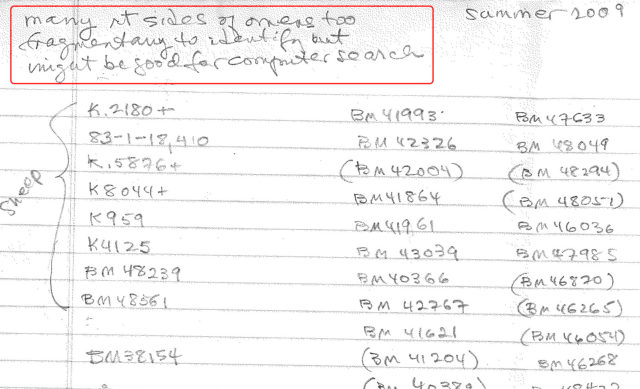 many rt sides of omens too
fragmentary to identify but
might be good for computer search
summer 2009
Sheep
K.2180+
83-1-18,410
K.5876+
K8044+
K959
K4125
BM 48239
BM48561
BM38154
BM41993
BM 42326
(BM 42004)
BM41864
BM41961
BM 43039
BM40366
BM 42767
BM 41621
(BM 41204)
BM47633
BM 48049
(BM 48294)
(BM 48051)
BM46036
BM47985
(BM46870)
(BM 46265)
(BM 46054)
BM46268